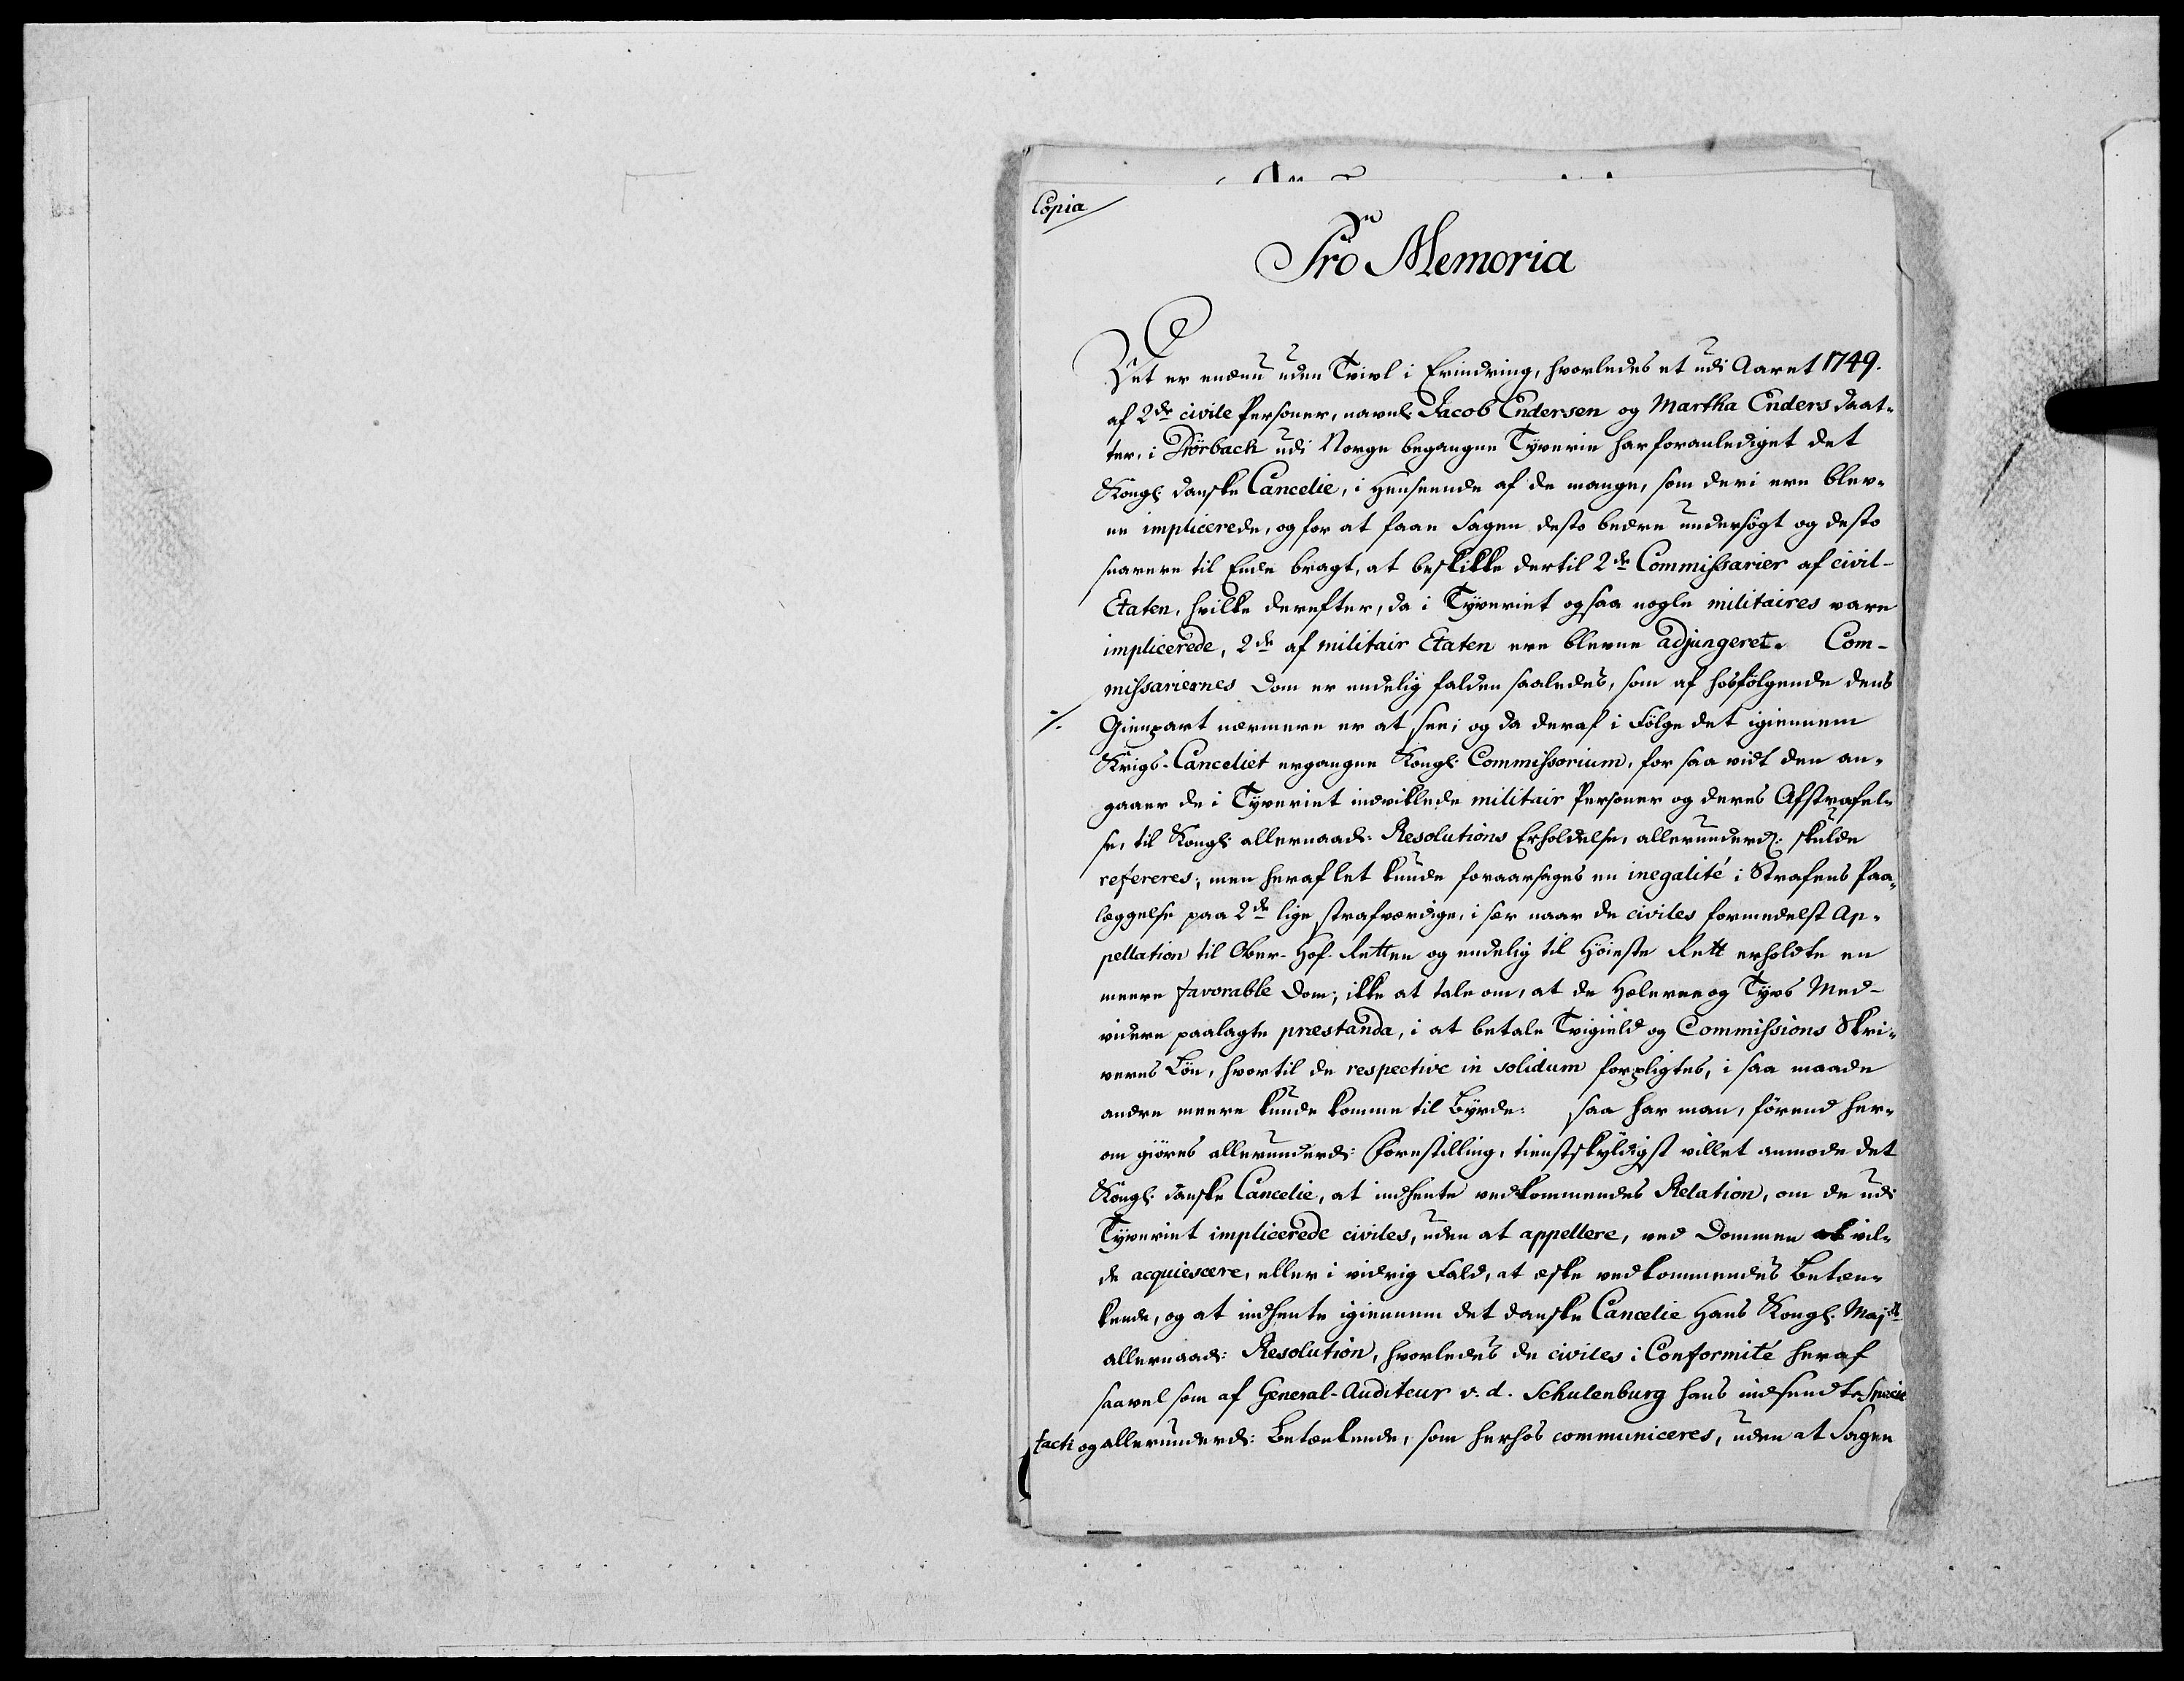 Copia
Pro Memoria
Det er endnu uden Tvivl i Erindring, hvorledes et udi Aaret 1749.
af 2de civile Personer, navnl: Jacob Endersen og Martha Enders daat-
ter, i Dörbach udi Norge begangne Tyverie har foranlediget det
Kongl: danske Cancelie, i Henseende af de mange, som deri ere blev-
ne implicerede, og for at faae Sagen desto bedre undersøgt og desto
snarere til Ende bragt, at beskikke dertil 2de Commissarier af civil-
Etaten, hvilke derefter, da i Tyveriet ogsaa nogle militaires vare
implicerede, 2de af militair Etaten ere blevne adjungeret. Com-
missariernes Dom er endelig falden saaledes, som af hosfølgende dens
Gienpart nærmere er at see; og da deraf i Følge det igiennem
Krigs-Canceliet ergangne Kongl: Commissorium, for saa vidt den an-
gaaer de i Tyveriet indviklede militair Personer og deres Afstrafel-
se, til Kongl: allernaad: Resolutions Erholdelse, allerunderd: skulde
refereres; men heraf let kunde foraarsages en inegalité i Strafens Paa-
læggelse paa 2de lige strafværdige, i sær naar de civiles formedelst Ap-
pellation til Ober-Hof-Retten og endelig til Høieste Rett erholdte en
meere favorable Dom; ikke at tale om, at de Hælere og Tyvs Med-
videre paalagte præstanda, i at betale Tvigield og Commissions Skri-
vernes Løn, hvortil de respective in solidum forpligtes, i saa maade
andre meere kunde komme til Byrde: saa har man, førend her-
om giøres allerunderd: Forestilling, tienstskyldigst villet anmode det
Kongl: danske Cancelie, at indhente vedkommendes Relation, om de udi
Tyveriet implicerede civiles, uden at appellere, ved Dommen vil-
de acquiescere, eller i vidrig Fald, at æske vedkommendes Betæn-
kende, og at indhente igiennem det danske Cancelie Hans Kongl: Majts
allernaad: Resolution, hvorledes de civiles i Conformité heraf
saavel som af General-Auditeur v. d. Schulenburg hans indsendte Specie
facti og allerunderd: Betænkende, som herhos communiceres, uden at Sagen